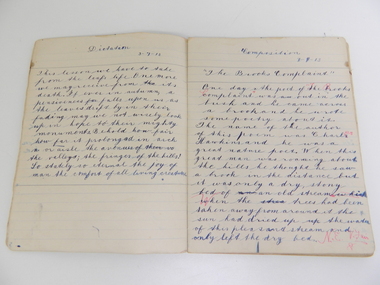 Dictation
This lesson we have to take
from the leafs life. One more
we may receive from the its
death. If ever in autumn
pensiveness falls upon us as
the leaves drift by in their
fading may we not wisely look
up in hope to their mighty
monuments. Behold how fair
how far it prolonged in arch
the valleys; the fringes of the hills!
So stately so eternal the joy of
man the comfort of all living creatures
Composition
"The Brooks Complaint"
One day the poet of the Brooks
complaint was out in the
bush and he came across
a brook and he wrote
some poetry about it.
The name of the author
of this poem was Charles
and he was a
great nature poet. When this
great man was roaming about
the hills he thought he saw
a brook in the distance but
it was only a dry, stony
bed of an old stream
When the trees had been
taken away from around it the
sun had dried up the water
of this pleasant stream and
only left the dry bed.